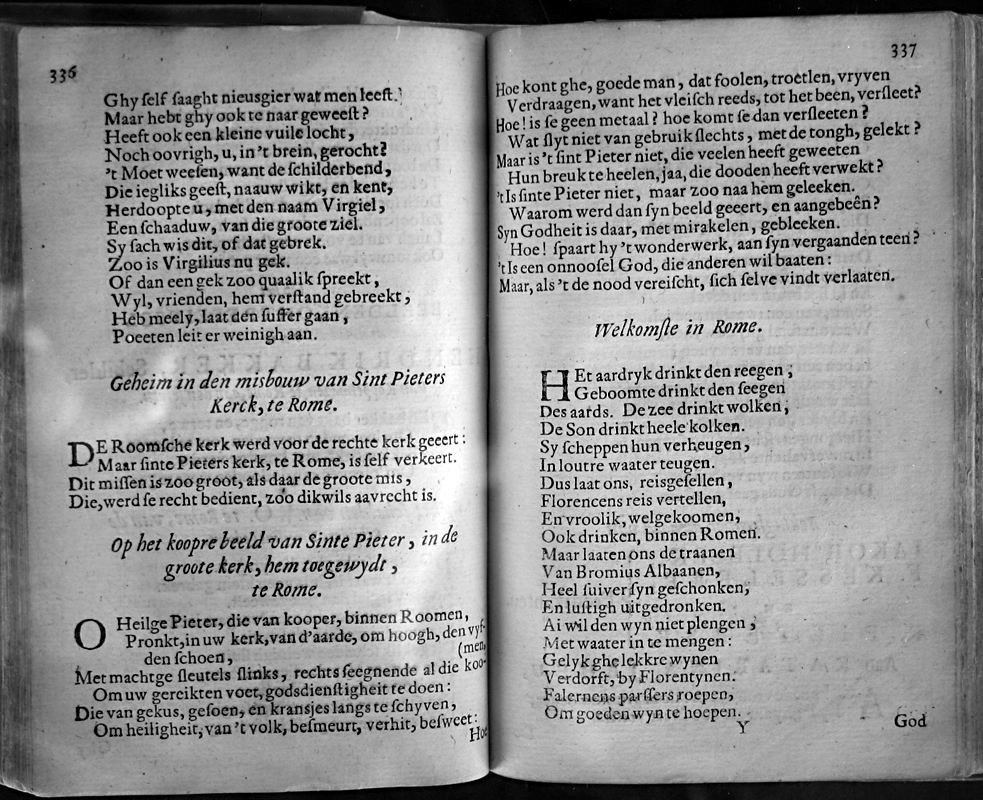 336
Ghy ſelf ſaaght nieusgier wat men leeſt.
Maar hebt ghy ook te naar geweeſt?
Heeft ook een kleine vuile locht,
Noch oovrigh, u, in 't brein, gerocht?
't Moet weeſen, want de ſchilderbend,
Die iegliks geeſt, naauw wikt, en kent,
Herdoopte u, met den naam Virgiel,
Een ſchaaduw, van die groote ziel.
Sy ſach wis dit, of dat gebrek.
Zoo is Virgilius nu gek.
Of dan een gek zoo quaalik ſpreekt,
Wyl, vrienden, hem verſtand gebreekt,
Heb meely, laat den ſuffer gaan,
Poeeten leit er weinigh aan.
Geheim in den misbouw van Sint Pieters
Kerck, te Rome.
DE Roomſche kerk werd voor de rechte kerk geeert:
Maar ſinte Pieters kerk, te Rome, is ſelf verkeert.
Dit miſſen is zoo groot, als daar de groote mis,
Die, werd ſe recht bedient, zoo dikwils aavrecht is.
Op het koopre beeld van Sinte Pieter, in de
groote kerk, hem toegewydt,
te Rome.
O Heilge Pieter, die van kooper, binnen Roomen,
Pronkt, in uw kerk, van d'aarde, om hoogh, den vyf-
den ſchoen, (men,
Met machtge ſleutels ſlinks, rechts ſeegnende al die koo-
Om uw gereikten voet, godsdienſtigheit te doen:
Die van gekus, geſoen, en kransjes langs te ſchyven,
Om heiligheit, van 't volk, beſmeurt, verhit, beſweet:
Hoe
337
Hoe kont ghe, goede man, dat foolen, troetlen, vryven
Verdraagen, want het vleiſch reeds, tot het been, verſleet?
Hoe! is ſe geen metaal? hoe komt ſe dan verſleeten?
Wat ſlyt niet van gebruik ſlechts, met de tongh, gelekt?
Maar is 't ſint Pieter niet, die veelen heeft geweeten
Hun breuk te heelen, jaa, die dooden heeft verwekt?
't Is ſinte Pieter niet, maar zoo naa hem geleeken.
Waarom werd dan ſyn beeld geeert, en aangebeên?
Syn Godheit is daar, met mirakelen, gebleeken.
Hoe! ſpaart hy 't wonderwerk, aan ſyn vergaanden teen?
't Is een onnooſel God, die anderen wil baaten:
Maar, als 't de nood vereiſcht, ſich ſelve vindt verlaaten.
Welkomſte in Rome.
HEt aardryk drinkt den reegen,
Geboomte drinkt den ſeegen
Des aards. De zee drinkt wolken,
De Son drinkt heele kolken.
Sy ſcheppen hun verheugen,
In loutre waater teugen.
Dus laat ons, reisgeſellen,
Florencens reis vertellen,
En vroolik, welgekoomen,
Ook drinken, binnen Romen.
Maar laaten ons de traanen
Van Bromius Albaanen,
Heel ſuiver ſyn geſchonken,
En luſtigh uitgedronken.
Ai wil den wyn niet plengen,
Met waater in te mengen:
Gelyk ghe lekkre wynen
Verdorft, by Florentynen.
Falernens parſſers roepen,
Om goeden wyn te hoepen.
Y
God